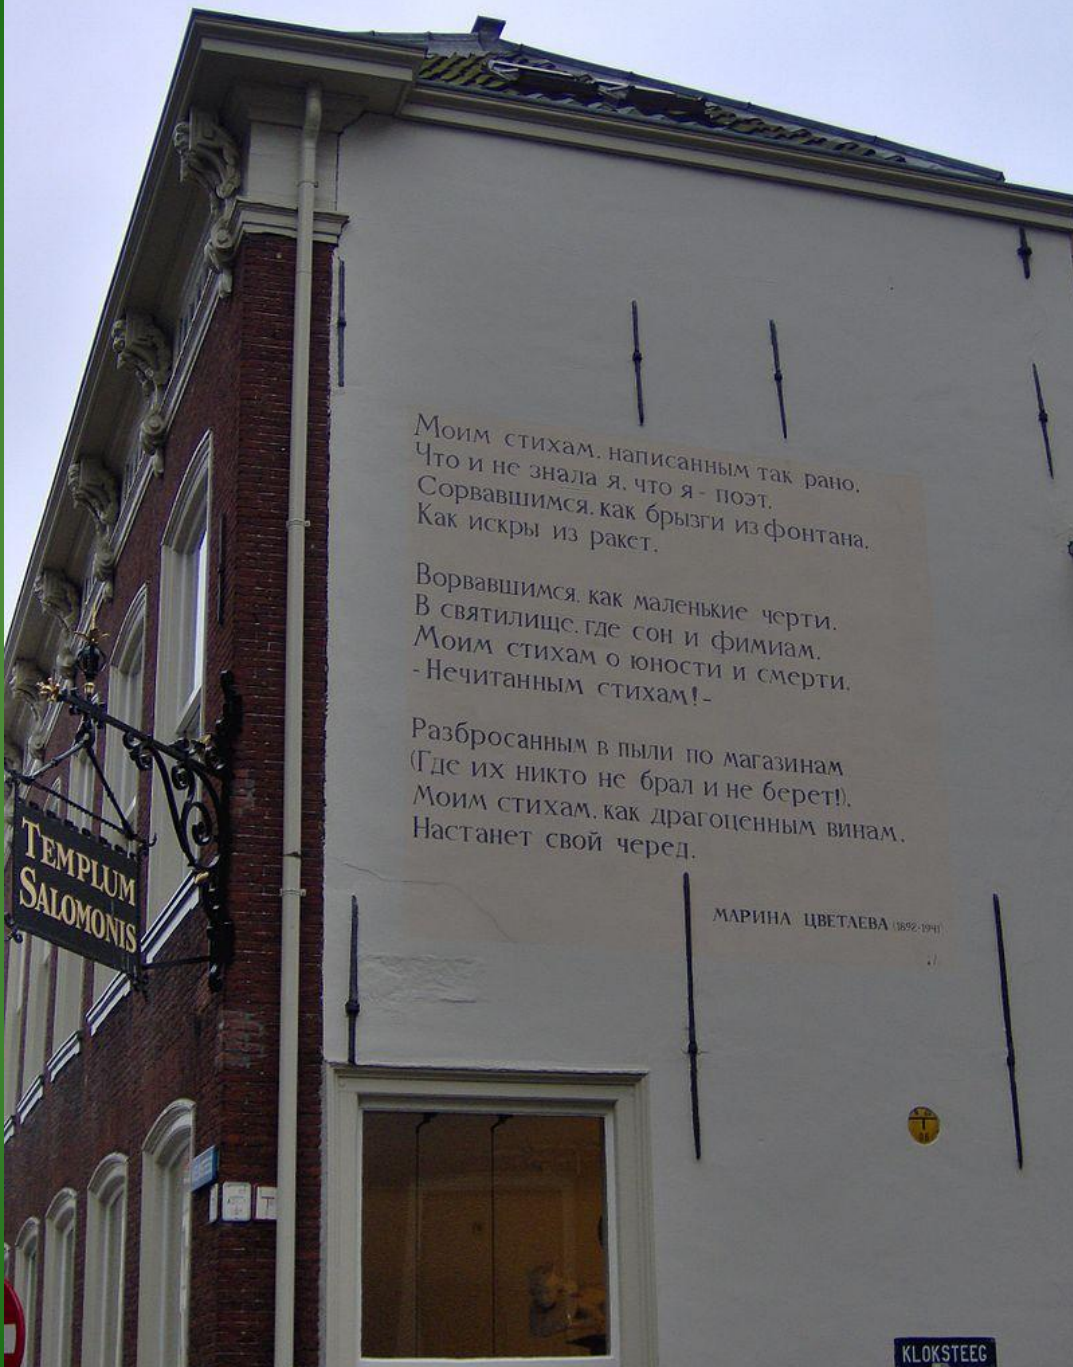 Моим стихам, написанным так рано,
Что и не знала я, что я - поэт,
Сорвавшимся, как брызги из фонтана,
Как искры из ракет,
Ворвавшимся, как маленькие черти,
В святилище, где сон и фимиам,
Моим стихам о юности и смерти,
- Нечитанным стихам! -
Разбросанным в пыли по магазинам
(Где их никто не брал и не берет!),
Моим стихам, как драгоценным винам,
Настанет свой черед.
МАРИНА ЦВЕТАЕВА (1892-1941)
TEMPLUM
SALOMONIS
KLOKSTEEG